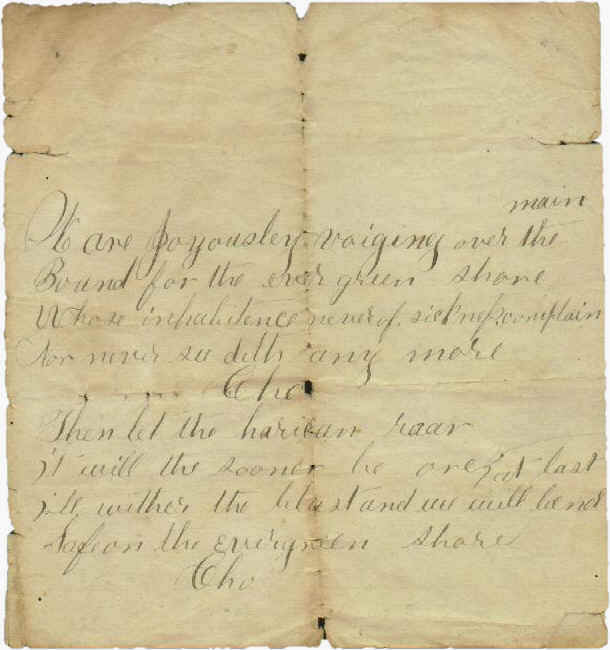 main
We are Joyousley voiging over the
Bound for the ever green shore
Whose inhabitence never of sickness complain
Nor never see deth any more
Cho
Then let the haricun roar
it will the sooner be ore
at last
ill wither the blast and we will land
Safe on the evirgreen shore
Cho